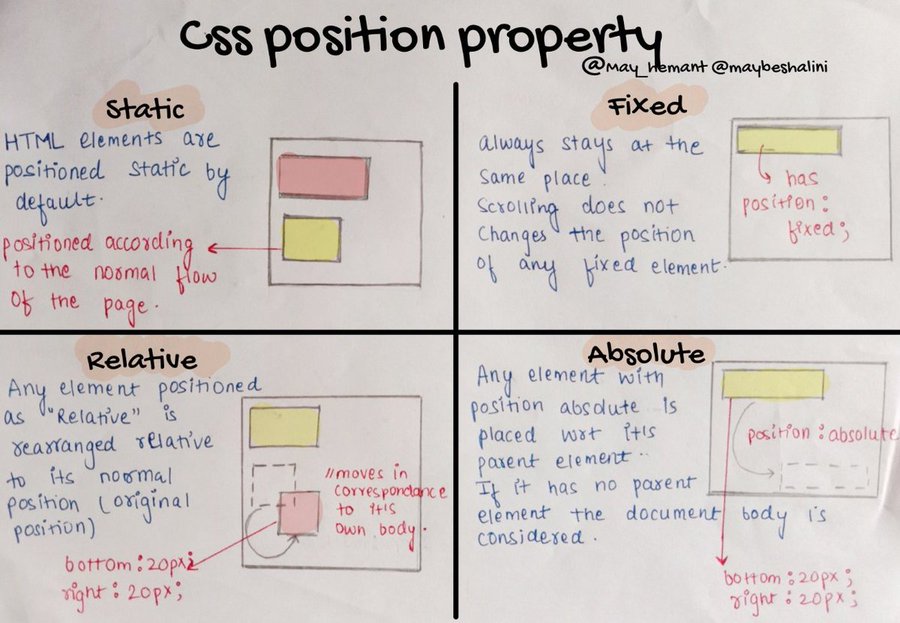 Css position property
@May_Hemant @maybeshalini
Static
HTML elements are
positioned static by
default.
positioned according
to the normal flow
of the page.
Fixed
Always stays at the
same place.
Scrolling does not
changes the position
of any fixed element.
has
position:
fixed;
Relative
Any element positioned
as "Relative" is
rearranged relative
to its normal
position (original
position)
//moves in
correspondance
to it's
own body.
bottom:20px;
right:20px;
Absolute
Any element with
position absolute is
placed wrt it's
parent element..
If it has no parent
element the document body is
considered.
position:absolute
bottom:20px;
right:20px;